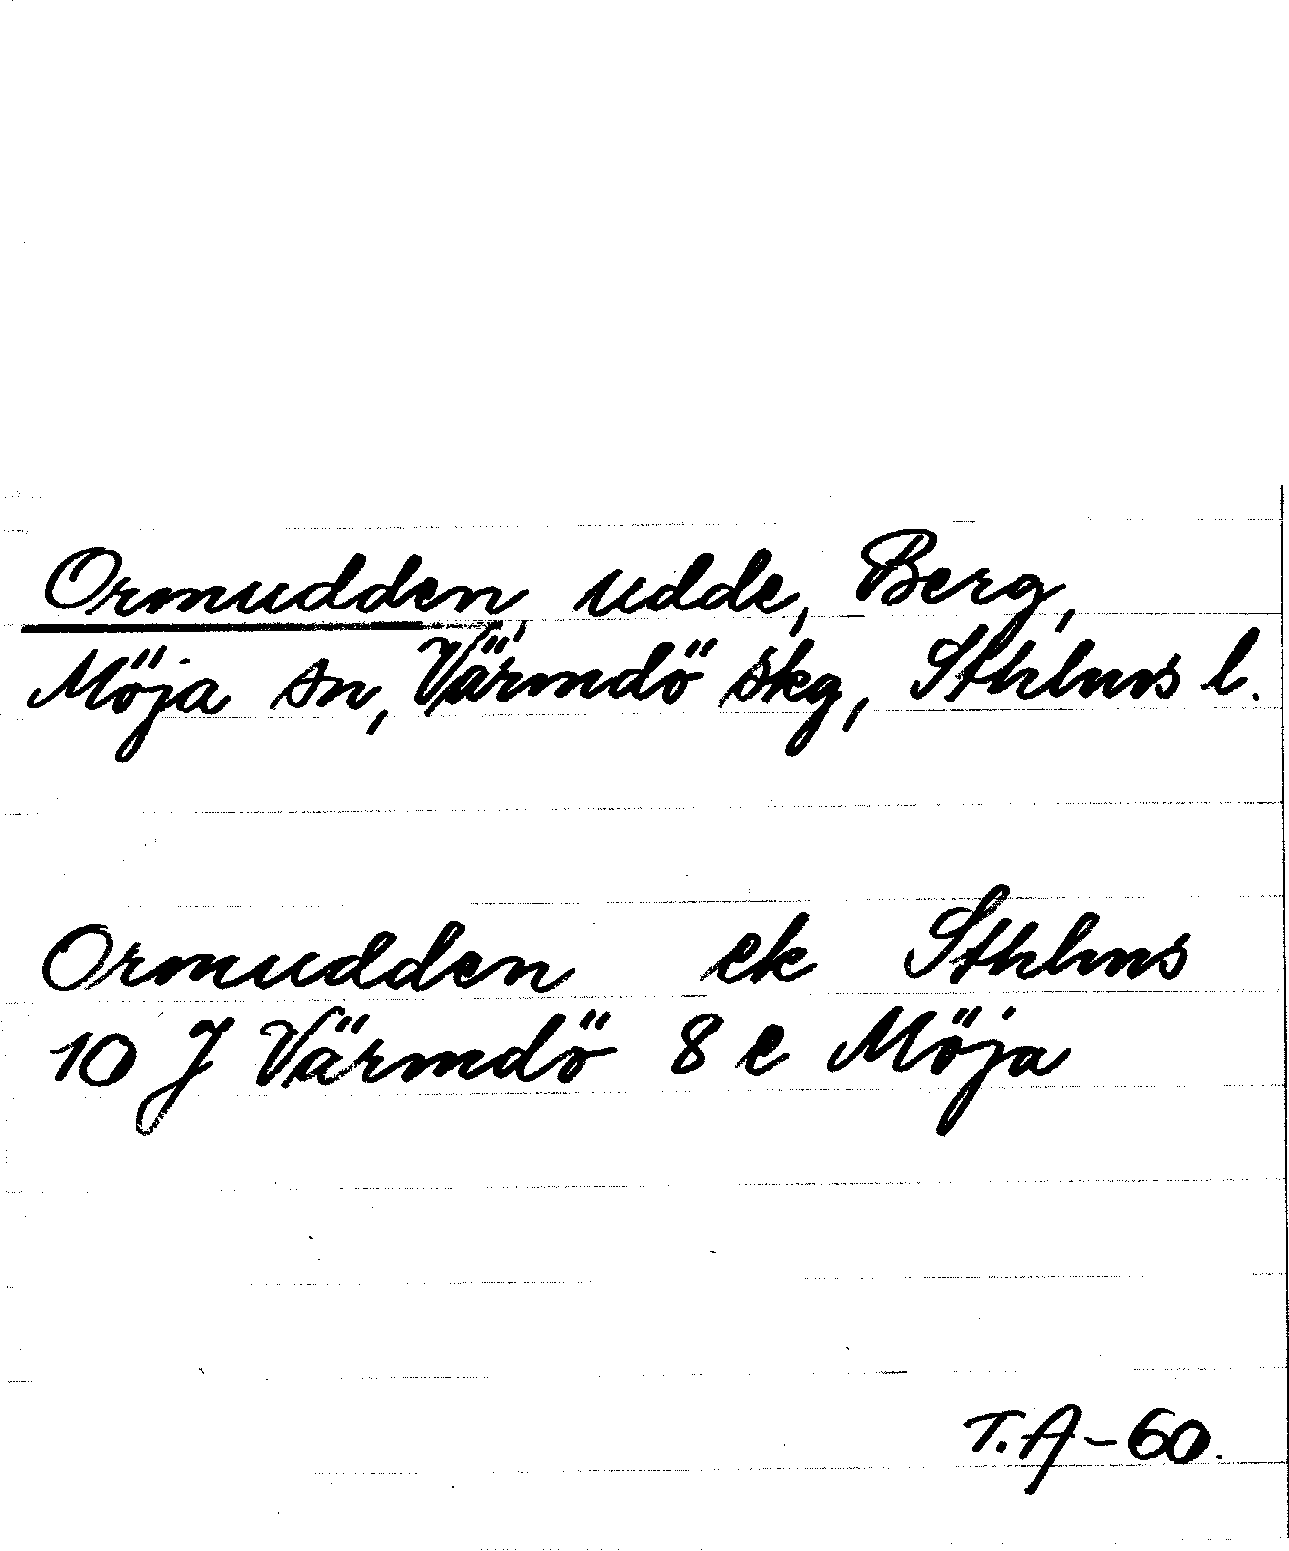 Ormudden, udde, Berg,
Möja sn, Värmdö skg, Sthlms l.
Ormudden ek Sthlms
10 J Värmdö 8 e Möja
T.A-60.